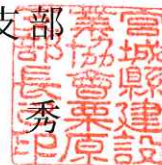 支部
秀
宮城縣建設
業協會栗原
支部長之印